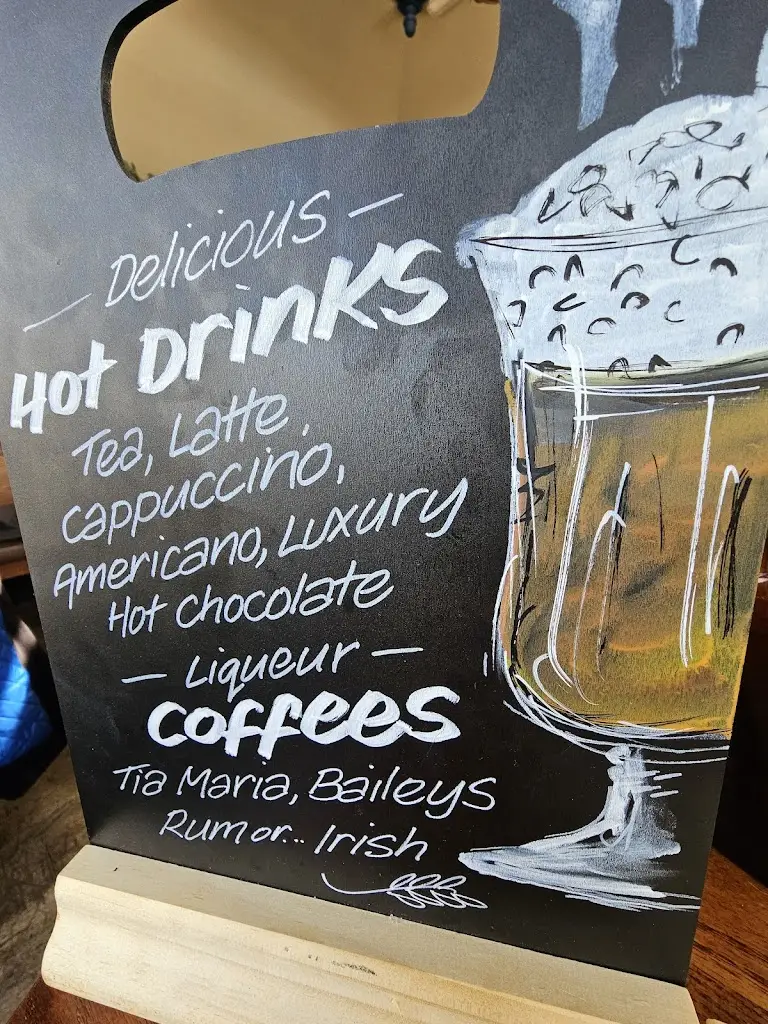 — Delicious —
Hot Drinks
Tea, Latte,
Cappuccino,
Americano, Luxury
Hot Chocolate
— Liqueur —
Coffees
Tia Maria, Baileys
Rum or... Irish